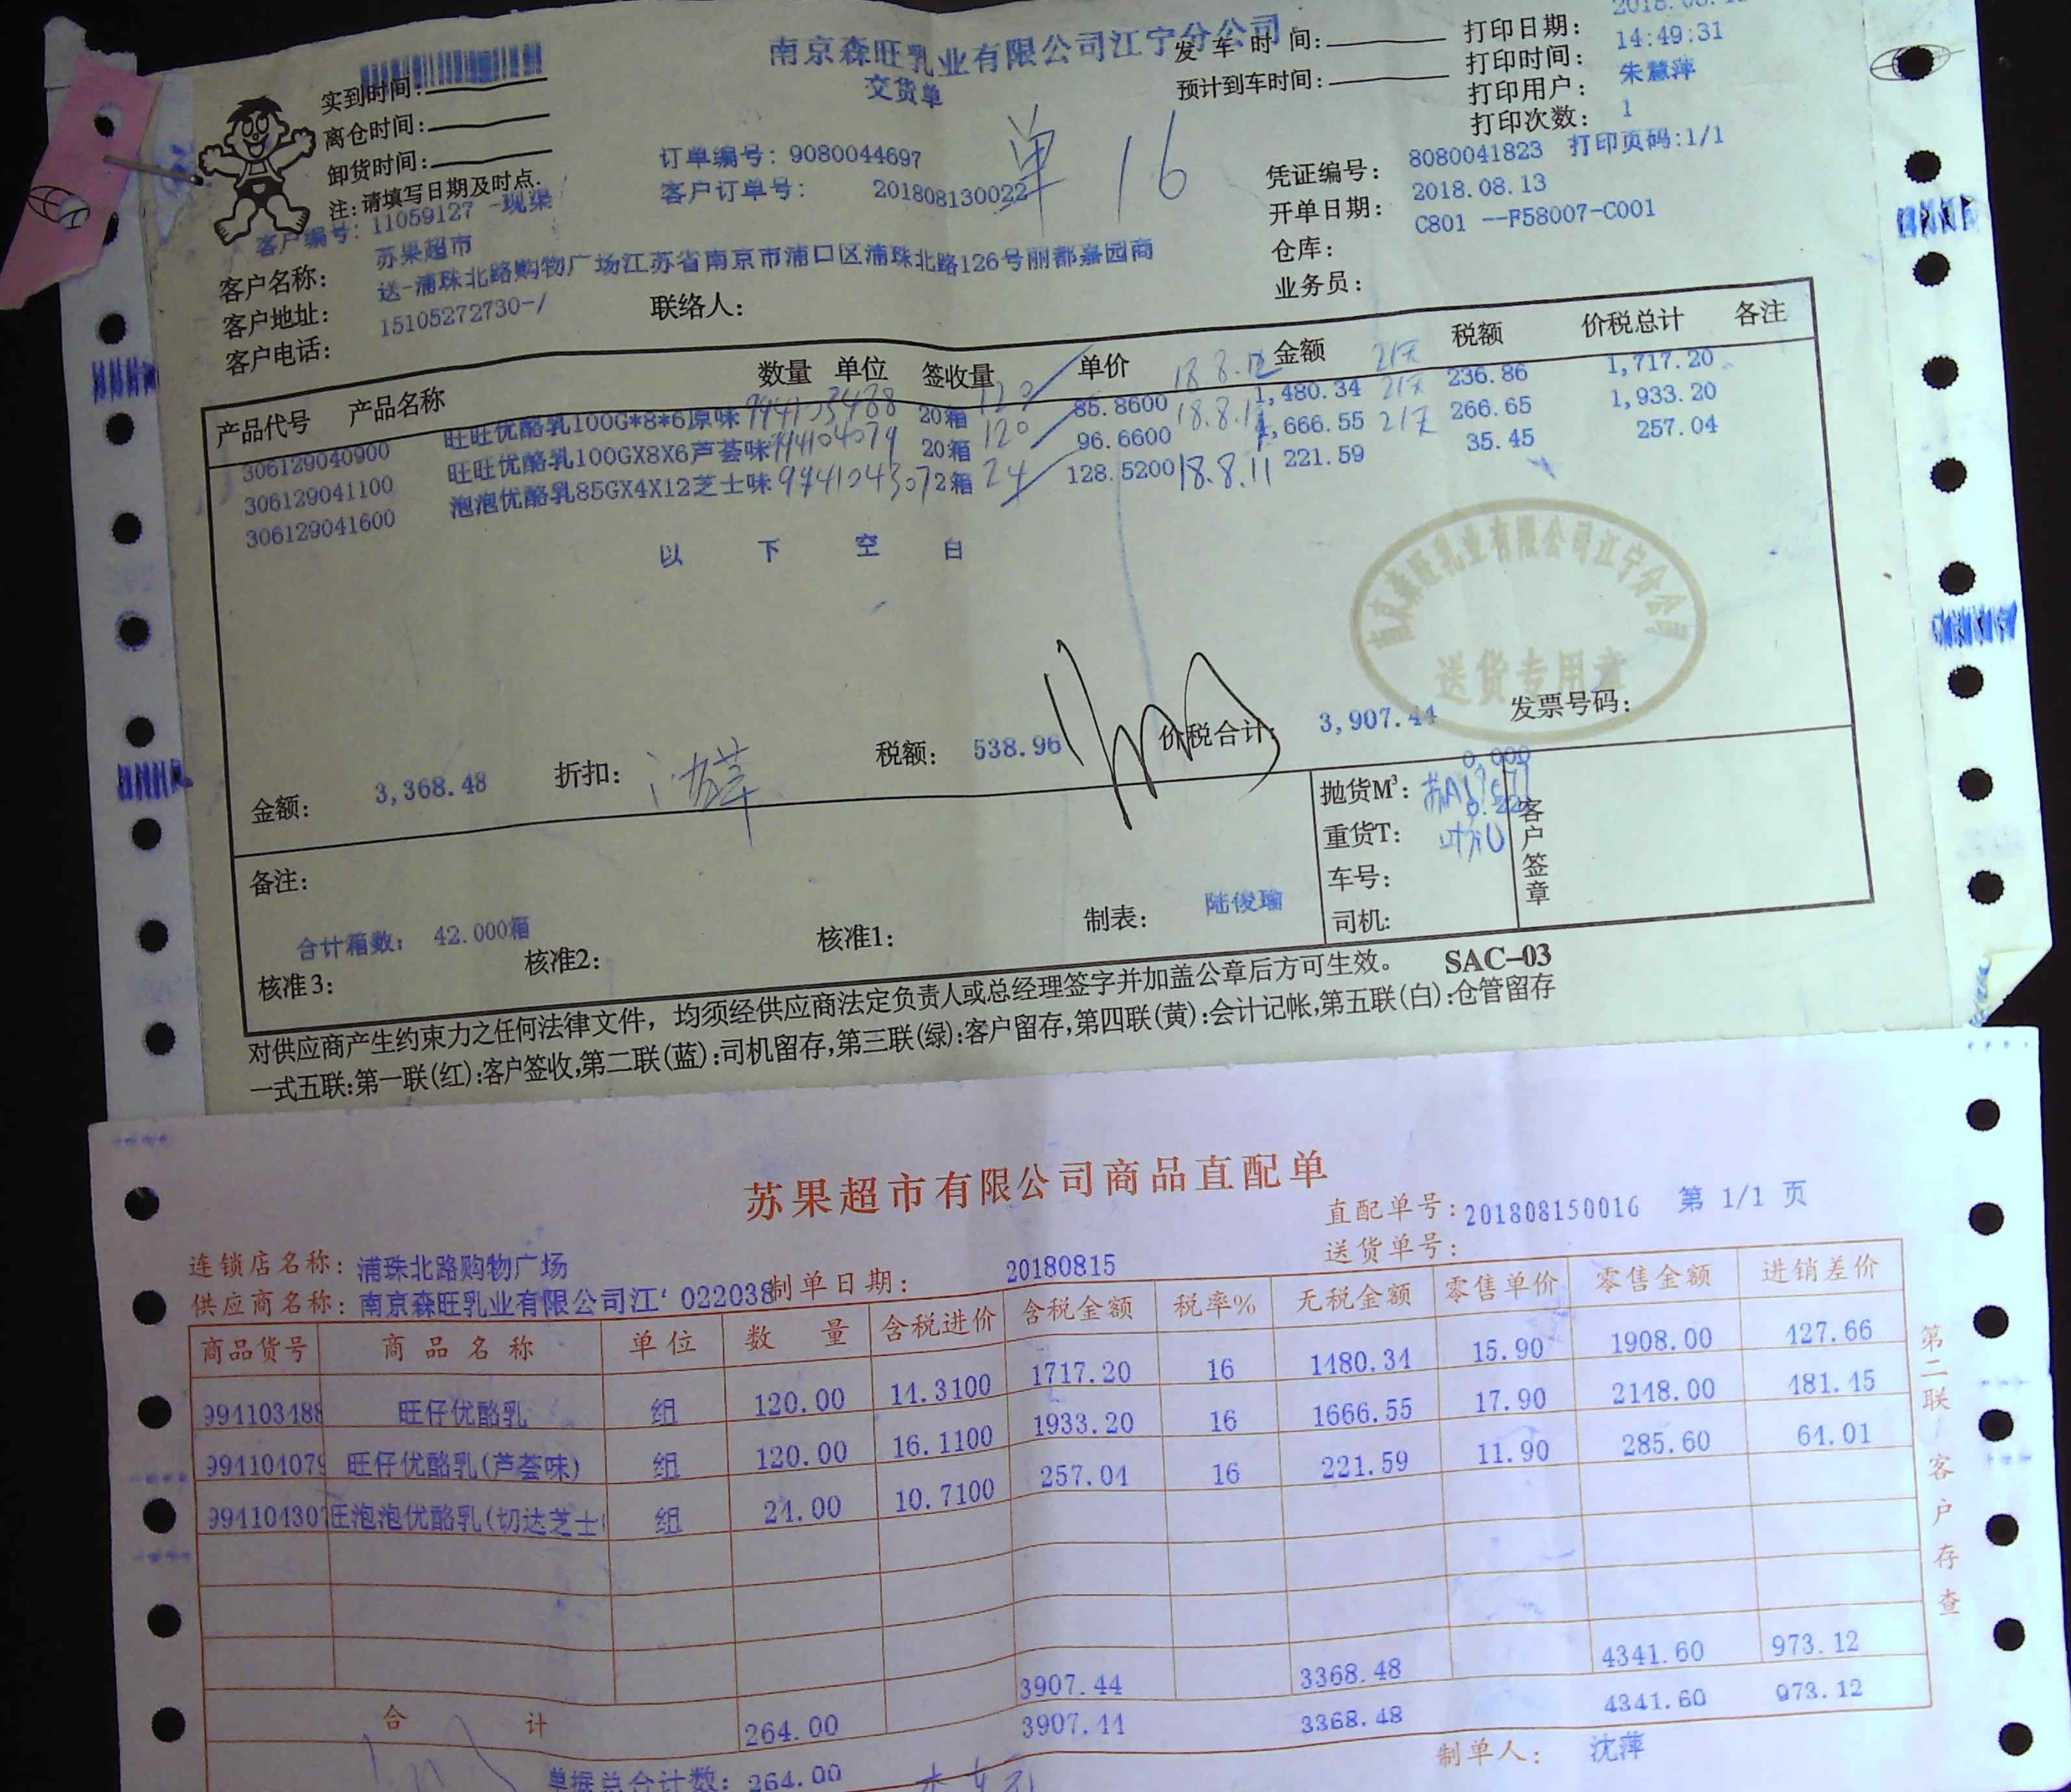 南京森旺乳业有限公司江宁分公司
交货单
实到时间:
离仓时间:
卸货时间:
注:请填写日期及时点.
发车时间:
预计到车时间:
打印日期:
打印时间: 14:49:31
打印用户: 朱慧萍
打印次数: 1
订单编号: 9080044697
客户订单号: 201808130022
单 16
凭证编号: 8080041823 打印页码:1/1
开单日期: 2018.08.13
仓库: C801 --F58007-C001
业务员:
客户编号: 11059127 -现渠
客户名称: 苏果超市
客户地址: 送-浦珠北路购物广场江苏省南京市浦口区浦珠北路126号丽都嘉园商
客户电话: 15105272730-/
联络人:
产品代号 产品名称 数量 单位 签收量 单价 金额 税额 价税总计 各注
306129040900 旺旺优酪乳100G*8*6原味 994103488 20箱 120 85.8600 1,480.34 21天 236.86 1,717.20
306129041100 旺旺优酪乳100GX8X6芦荟味 994104079 20箱 120 96.6600 1,666.55 21天 266.65 1,933.20
306129041600 泡泡优酪乳85GX4X12芝士味 994104307 2箱 24 128.5200 18.8.11 221.59 35.45 257.04
以下空白
南京森旺乳业有限公司江宁分公司
送货专用章
金额: 3,368.48 折扣: 税额: 538.96 价税合计: 3,907.44 发票号码:
备注:
合计箱数: 42.000箱
抛货M³: 0.000
重货T:
车号:
司机:
客户签章
核准3: 核准2: 核准1: 制表: 陆俊瑜
对供应商产生约束力之任何法律文件，均须经供应商法定负责人或总经理签字并加盖公章后方可生效。 SAC-03
一式五联:第一联(红):客户签收,第二联(蓝):司机留存,第三联(绿):客户留存,第四联(黄):会计记帐,第五联(白):仓管留存
苏果超市有限公司商品直配单
直配单号: 201808150016 第 1/1 页
送货单号:
连锁店名称: 浦珠北路购物广场
供应商名称: 南京森旺乳业有限公司江' 022038 制单日期: 20180815
商品货号 商品名称 单位 数量 含税进价 含税金额 税率% 无税金额 零售单价 零售金额 进销差价
994103488 旺仔优酪乳 组 120.00 14.3100 1717.20 16 1480.34 15.90 1908.00 427.66
994104079 旺仔优酪乳(芦荟味) 组 120.00 16.1100 1933.20 16 1666.55 17.90 2148.00 481.45
994104307 旺泡泡优酪乳(切达芝士 组 24.00 10.7100 257.04 16 221.59 11.90 285.60 64.01
3907.44 3368.48 4341.60 973.12
合计 264.00 3907.44 3368.48 4341.60 973.12
单据总合计数: 264.00
制单人: 沈萍
第二联 客户存查